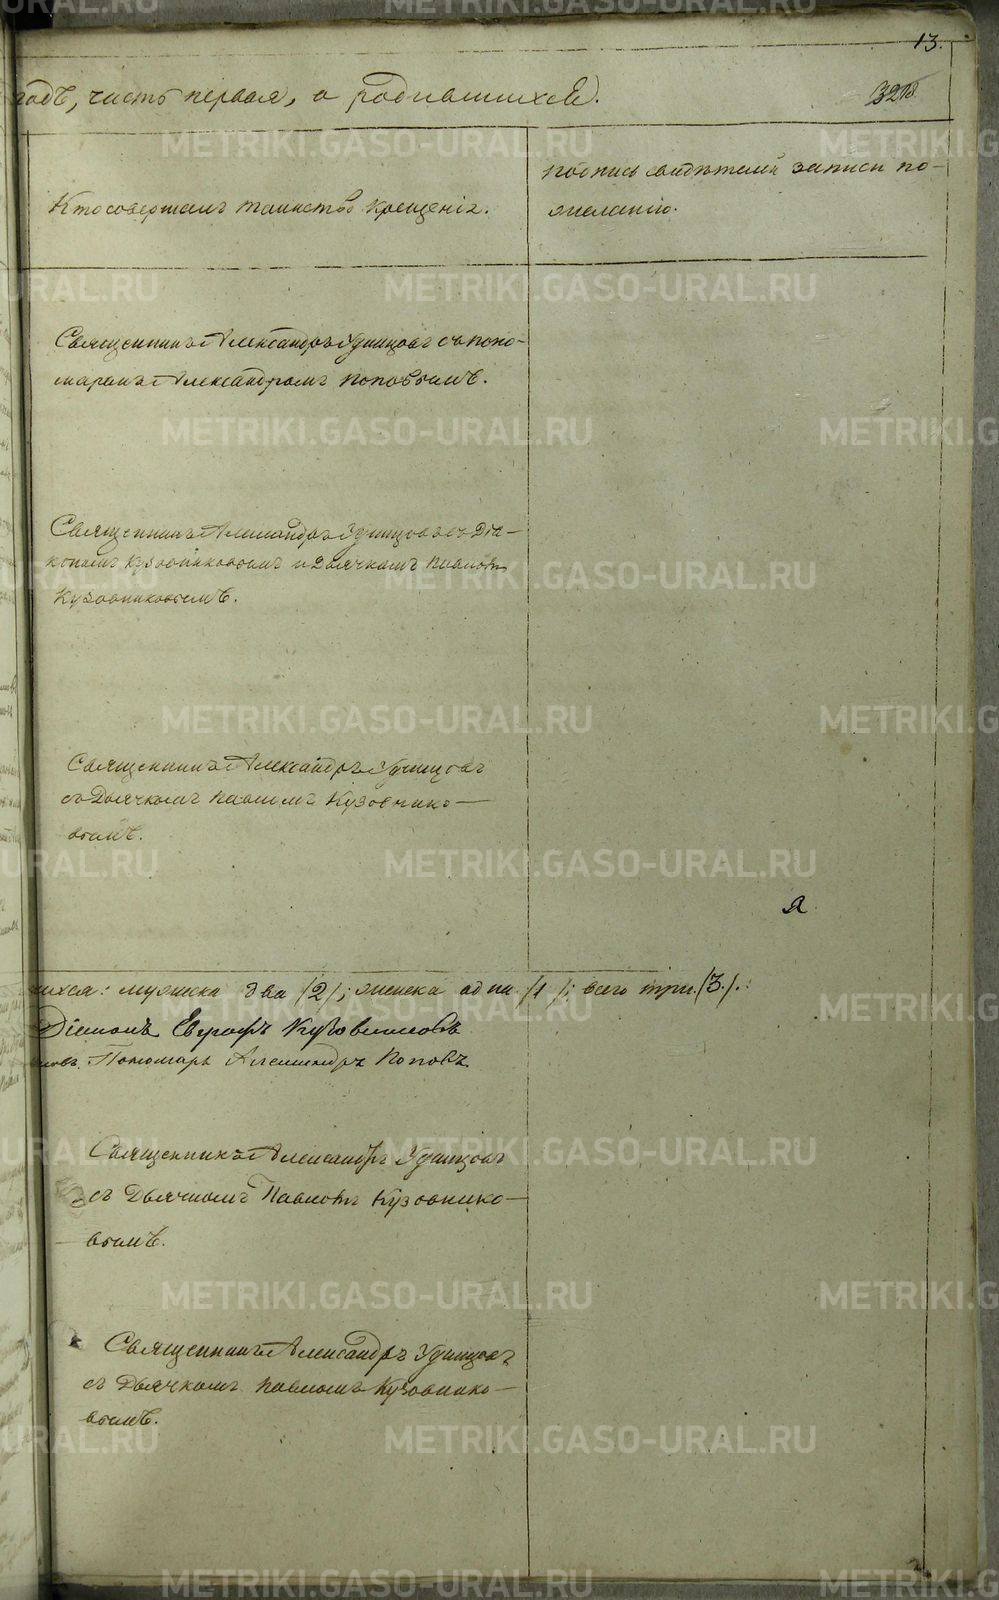 13.
годъ, часть первая, о родившихся.
Кто совершалъ таинство крещенія.
подпись свидѣтелей записи по
желанію.
Священникъ Александръ Удинцовъ съ поно-
маремъ Александромъ Поповымъ.
Священникъ Александръ Удинцовъ съ Діа-
кономъ Кузовниковымъ и Дьячкомъ Павломъ
Кузовниковымъ.
Священникъ Александръ Удинцовъ
съ Дьячкомъ Павломъ Кузовнико-
вымъ.
Я
шихся: мужеска два /2/; женска одна /1/; всего три /3/.
Діаконъ Евграфъ Кузовниковъ
ковъ. Пономарь Александръ Поповъ.
Священникъ Александръ Удинцовъ
съ Дьячкомъ Павломъ Кузовнико-
вымъ.
Священникъ Александръ Удинцовъ
съ Дьячкомъ Павломъ Кузовнико-
вымъ.
METRIKI.GASO-URAL.RU